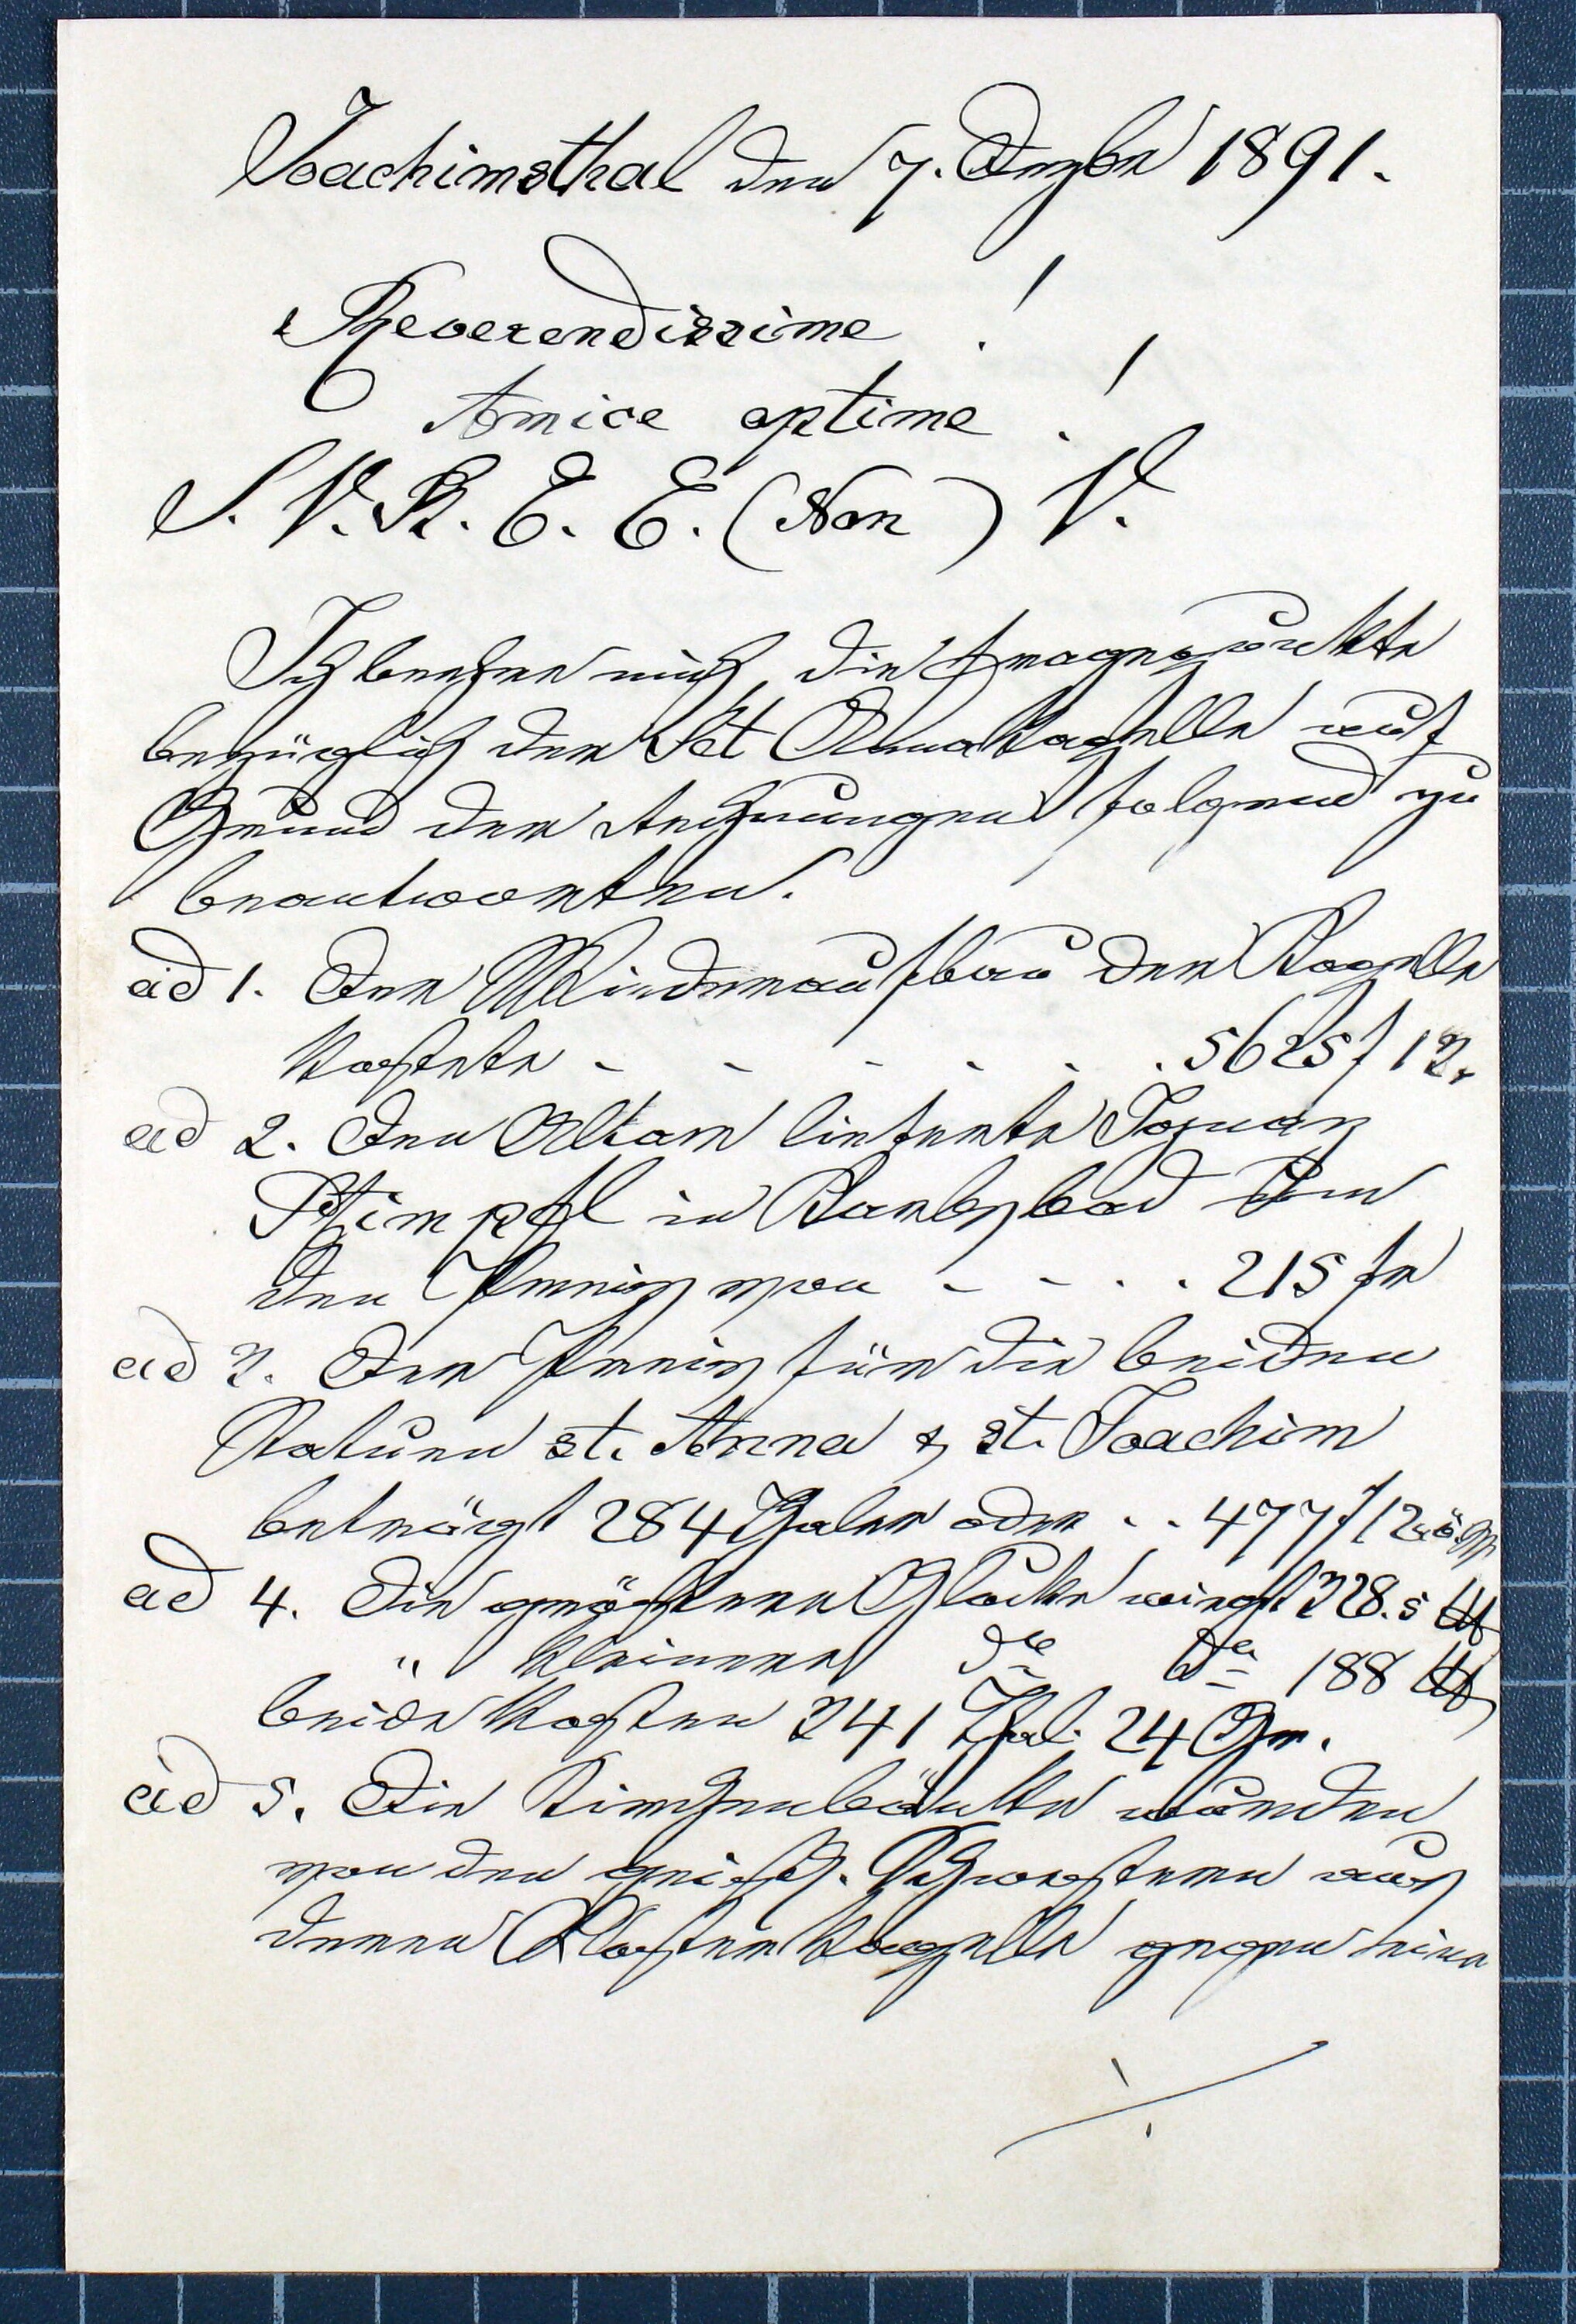 Joachimsthal den 7. Dezbr 1891.
Reverendissime !
Amice optime !
S. V. B. E. E. (Non) V.
Ich beehre mich die Fragepunkte
bezüglich der Skt Annakapelle auf
Grund der Rechnungen folgend zu
beantworten.
ad 1. Der Wiederaufbau der Kapelle
kostete - - - - - . 5625 f 13
ad 2. Den Altar lieferte Ignaz
Stimpfl in Karlsbad um
den Preis von - - . . 215 fr
ad 3. Der Preis für die beiden
Statuen st. Anna & st. Joachim
beträgt 284 Thaler oder . . 477 f 12
ad 4. Die größere Glocke wiegt 328.5 ℔
" kleinere dto dto 188 ℔
beide kosten 341 Thal. 24 Gr.
ad 5. Die Kirchenbänke wurden
von den geistl. Schwestern aus
deren Klosterkapelle gegen eine
./.